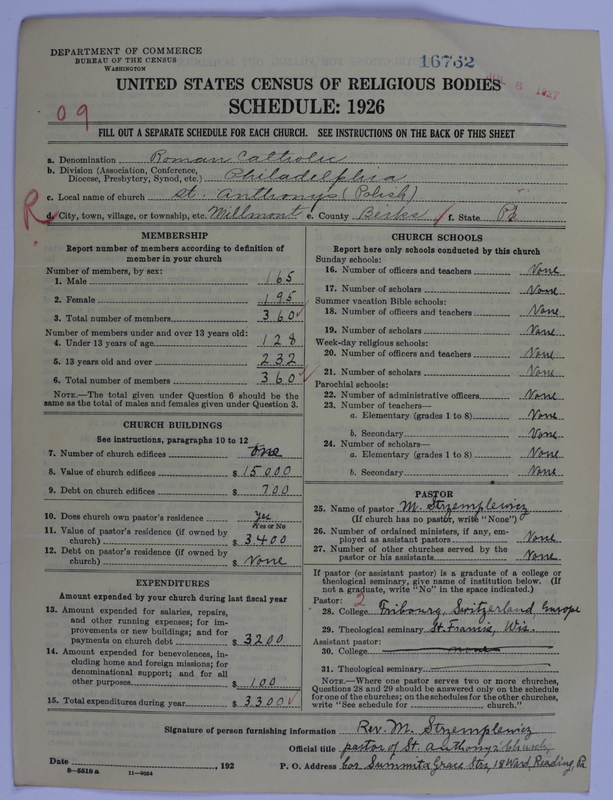 DEPARTMENT OF COMMERCE
BUREAU OF THE CENSUS
WASHINGTON
16762
6 1927
UNITED STATES CENSUS OF RELIGIOUS BODIES
SCHEDULE: 1926
09
FILL OUT A SEPARATE SCHEDULE FOR EACH CHURCH. SEE INSTRUCTIONS ON THE BACK OF THIS SHEET
a. Denomination Roman Catholic
b. Division (Association, Conference, Diocese, Presbytery, Synod, etc.) Philadelphia
c. Local name of church St. Anthonys (Polish)
R d. City, town, village, or township, etc. Millmont e. County Berks f. State Pa
MEMBERSHIP
Report number of members according to definition of member in your church
Number of members, by sex:
1. Male 165
2. Female 195
3. Total number of members 360
Number of members under and over 13 years old:
4. Under 13 years of age 128
5. 13 years old and over 232
6. Total number of members 360
NOTE.—The total given under Question 6 should be the same as the total of males and females given under Question 3.
CHURCH BUILDINGS
See instructions, paragraphs 10 to 12
7. Number of church edifices One
8. Value of church edifices $ 15000
9. Debt on church edifices $ 700
10. Does church own pastor's residence Yes
Yes or No
11. Value of pastor's residence (if owned by church) $ 3400
12. Debt on pastor's residence (if owned by church) $ None
EXPENDITURES
Amount expended by your church during last fiscal year
13. Amount expended for salaries, repairs, and other running expenses; for improvements or new buildings; and for payments on church debt $ 3200
14. Amount expended for benevolences, including home and foreign missions; for denominational support; and for all other purposes $ 100
15. Total expenditures during year $ 3300
CHURCH SCHOOLS
Report here only schools conducted by this church
Sunday schools:
16. Number of officers and teachers None
17. Number of scholars None
Summer vacation Bible schools:
18. Number of officers and teachers None
19. Number of scholars None
Week-day religious schools:
20. Number of officers and teachers None
21. Number of scholars None
Parochial schools:
22. Number of administrative officers None
23. Number of teachers—
a. Elementary (grades 1 to 8) None
b. Secondary None
24. Number of scholars—
a. Elementary (grades 1 to 8) None
b. Secondary None
PASTOR
25. Name of pastor M. Strzemplewicz
(If church has no pastor, write "None")
26. Number of ordained ministers, if any, employed as assistant pastors None
27. Number of other churches served by the pastor or his assistants None
If pastor (or assistant pastor) is a graduate of a college or theological seminary, give name of institution below. (If not a graduate, write "No" in the space indicated.)
Pastor: 2
28. College Fribourg, Switzerland, Europe
29. Theological seminary St. Francis, Wis.
Assistant pastor:
30. College none
31. Theological seminary
NOTE.—Where one pastor serves two or more churches, Questions 28 and 29 should be answered only on the schedule for one of the churches; on the schedules for the other churches, write "See schedule for church."
Signature of person furnishing information Rev. M. Strzemplewicz
Official title pastor of St. Anthonys Church,
Date , 192 P. O. Address cor Summit & Grace Strs, 18 Ward, Reading, Pa
8—5518 a 11—9034